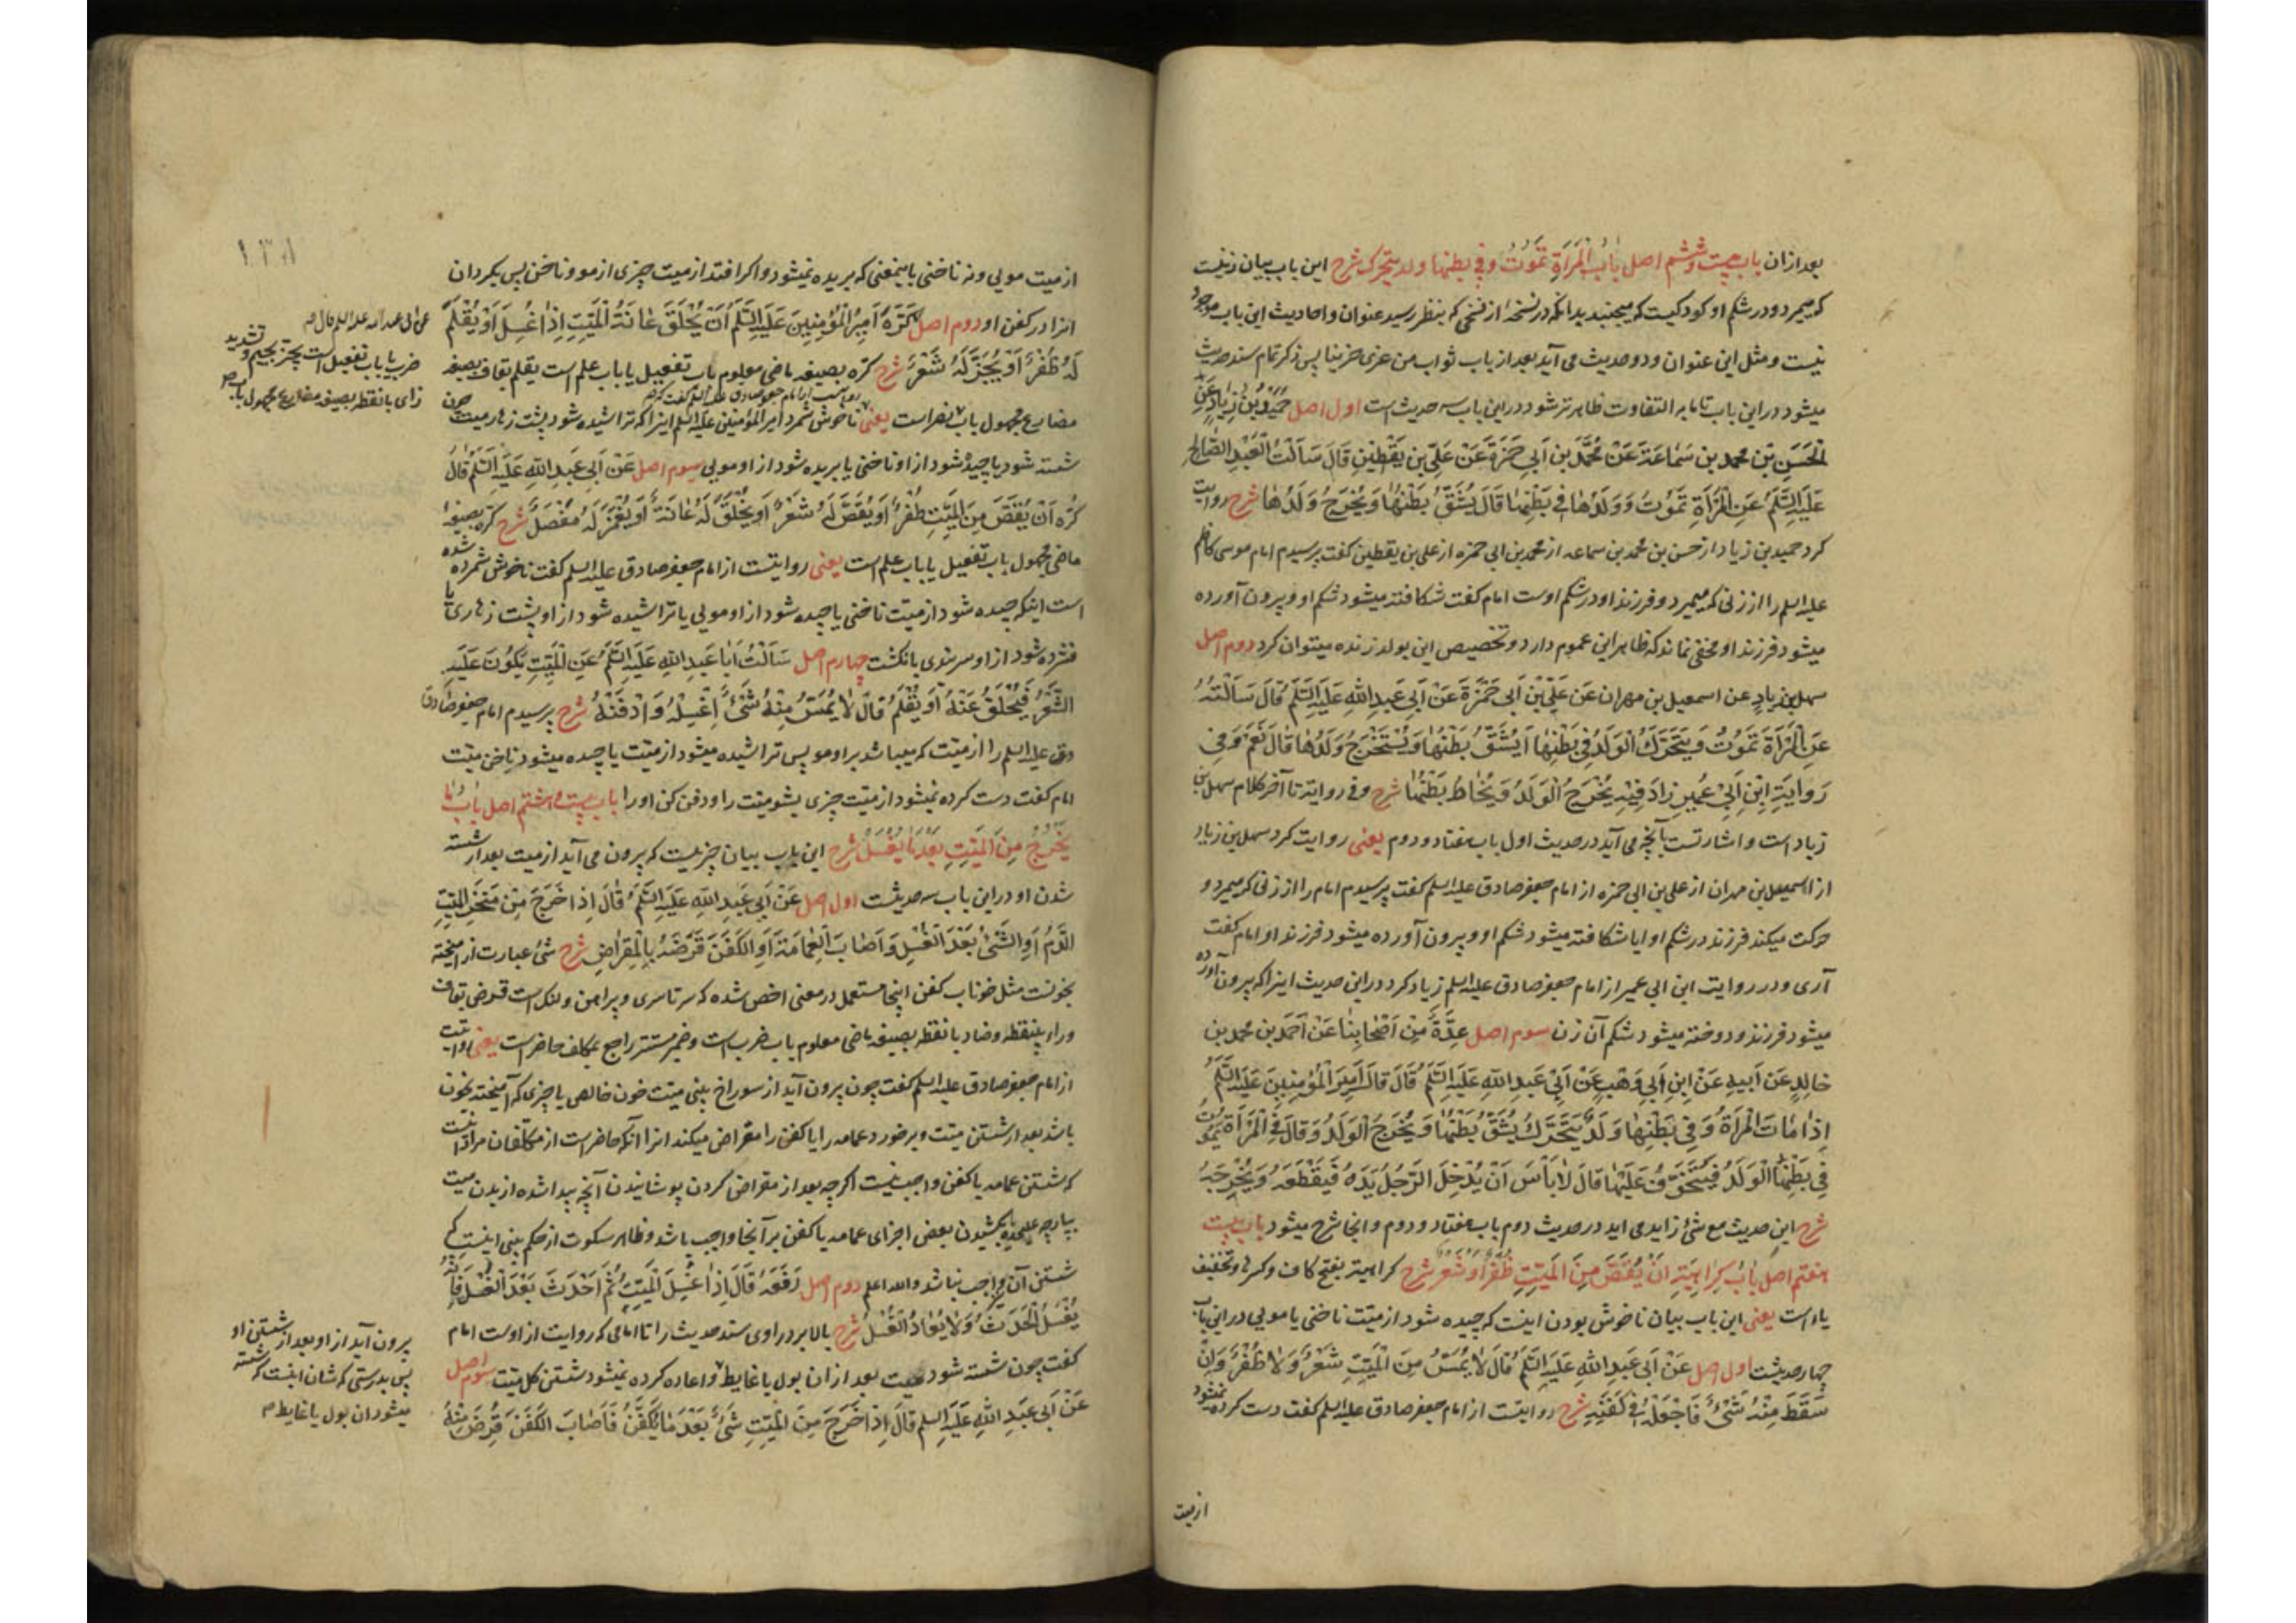 بعد ازان باب بیست و ششم اصل بَابُ الْمَرْأَةِ تَمُوتُ وَفِي بَطْنِهَا وَلَدٌ يَتَحَرَّكُ شرح این باب بیان زنیست
که میمیرد و در شکم او کودکیست که میجنبد بدانکه در نسخهٔ از نسخی که بنظر رسید عنوان و احادیث این باب موجود
نیست و مثل این عنوان و دو حدیث می آید بعد از باب ثواب من عزی حزینا پس ذکر تمام سند حدیث
میشود در این باب تا ما به التفاوت ظاهرتر شود در این باب سه حدیث است اول اصل حُمَيْدُ بْنُ زِيَادٍ عَنِ
الْحَسَنِ بْنِ مُحَمَّدِ بْنِ سَمَاعَةَ عَنْ مُحَمَّدِ بْنِ أَبِي حَمْزَةَ عَنْ عَلِيِّ بْنِ يَقْطِينٍ قَالَ سَأَلْتُ الْعَبْدَ الصَّالِحَ
عَلَيْهِ السَّلَمُ عَنِ الْمَرْأَةِ تَمُوتُ وَوَلَدُهَا فِي بَطْنِهَا قَالَ يُشَقُّ بَطْنُهَا وَيُخْرَجُ وَلَدُهَا شرح روایت
کرد حمید بن زیاد از حسن بن محمد بن سماعه از محمد بن ابی حمزه از علی بن یقطین گفت پرسیدم امام موسی کاظم
علیه السلم را از زنی که میمیرد و فرزند او در شکم اوست امام گفت شکافته میشود شکم او و بیرون آورده
میشود فرزند او مخفی نماند که ظاهر این عموم دارد و تخصیص این بولد زنده میتوان کرد دوم اصل
سهل بن زیاد عن اسمعیل بن مهران عَنْ عَلِيِّ بْنِ أَبِي حَمْزَةَ عَنْ أَبِي عَبْدِ اللهِ عَلَيْهِ السَّلَمُ قَالَ سَأَلْتُهُ
عَنِ الْمَرْأَةِ تَمُوتُ وَيَتَحَرَّكُ الْوَلَدُ فِي بَطْنِهَا أَيُشَقُّ بَطْنُهَا وَيُسْتَخْرَجُ وَلَدُهَا قَالَ نَعَمْ وَفِي
رِوَايَةِ ابْنِ أَبِي عُمَيْرٍ زَادَ فِيهِ يُخْرَجُ الْوَلَدُ وَيُخَاطُ بَطْنُهَا شرح و فی روایة تا آخر کلام سهل بن
زیاد است و اشارتست بآنچه می آید در حدیث اول باب هفتاد و دوم یعنی روایت کرد سهل بن زیاد
از اسمعیل بن مهران از علی بن ابی حمزه از امام جعفر صادق علیه السلم گفت پرسیدم امام را از زنی که میمیرد و
حرکت میکند فرزند در شکم او ایا شکافته میشود شکم او و بیرون آورده میشود فرزند او امام گفت
آری و در روایت ابن ابی عمیر از امام جعفر صادق علیه السلم زیاد کرد در این حدیث اینرا که بیرون آورده
میشود فرزند و دوخته میشود شکم آن زن سوم اصل عِدَّةٌ مِنْ أَصْحَابِنَا عَنْ أَحْمَدَ بْنِ مُحَمَّدِ بْنِ
خَالِدٍ عَنْ أَبِيهِ عَنِ ابْنِ أَبِي وَهْبٍ عَنْ أَبِي عَبْدِ اللهِ عَلَيْهِ السَّلَمُ قَالَ قَالَ أَمِيرُ الْمُؤْمِنِينَ عَلَيْهِ السَّلَمُ
إِذَا مَاتَتِ الْمَرْأَةُ وَفِي بَطْنِهَا وَلَدٌ يَتَحَرَّكُ يُشَقُّ بَطْنُهَا وَيُخْرَجُ الْوَلَدُ وَقَالَ فِي الْمَرْأَةِ يَمُوتُ
فِي بَطْنِهَا الْوَلَدُ فَيُتَخَوَّفُ عَلَيْهَا قَالَ لَا بَأْسَ أَنْ يُدْخِلَ الرَّجُلُ يَدَهُ فَيَقْطَعَهُ وَيُخْرِجَهُ
شرح این حدیث مع شئ زاید می اید در حدیث دوم باب هفتاد و دوم و انجا شرح میشود باب بیست
هفتم اصل بَابُ كَرَاهِيَةِ أَنْ يُقَصَّ مِنَ الْمَيِّتِ ظُفُرٌ أَوْ شَعْرٌ شرح کراهیة بفتح کاف و کسر ها و تخفیف
یاء است یعنی این باب بیان ناخوش بودن اینست که چیده شود از میّت ناخنی یا مویی در این باب
چهار حدیثست اول اصل عَنْ أَبِي عَبْدِ اللهِ عَلَيْهِ السَّلَمُ قَالَ لَا يُمَسُّ مِنَ الْمَيِّتِ شَعْرٌ وَلَا ظُفُرٌ وَإِنْ
سَقَطَ مِنْهُ شَيْءٌ فَاجْعَلْهُ فِي كَفَنِهِ شرح روایتست از امام جعفر صادق علیه السلم گفت دست کرده نمیشود
از میت
از میت مویی و نه ناخنی باینمعنی که بریده نمیشود و اگر افتد از میت چیزی از مو و ناخن پس بگردان
انرا در کفن او دوم اصل كَرِهَ أَمِيرُ الْمُؤْمِنِينَ عَلَيْهِ السَّلَمُ أَنْ يُحْلَقَ عَانَةُ الْمَيِّتِ إِذَا غُسِلَ أَوْ يُقْلَمَ
لَهُ ظُفُرٌ أَوْ يُجَزَّ لَهُ شَعْرٌ شرح کره بصیغه ماضی معلوم باب تفعیل یا باب علم است یقلم بقاف بصیغه
مضارع مجهول باب ضرب است یعنی ناخوش شمرد امیر المؤمنین علیه السلم اینرا که تراشیده شود پشت زهار میت چون
شسته شود یا چیده شود از او ناخنی یا بریده شود از او مویی سوم اصل عَنْ أَبِي عَبْدِ اللهِ عَلَيْهِ السَّلَمُ قَالَ
كُرِهَ أَنْ يُقَصَّ مِنَ الْمَيِّتِ ظُفُرٌ أَوْ يُقَصَّ لَهُ شَعْرٌ أَوْ يُحْلَقَ لَهُ عَانَةٌ أَوْ يُغْمَزَ لَهُ مَفْصَلٌ شرح کره بصیغهٔ
ماضی مجهول باب تفعیل یا باب علم است یعنی روایتست از امام جعفر صادق علیه السلم گفت ناخوش شمرده شده
است اینکه چیده شود از میّت ناخنی یا چیده شود از او مویی یا تراشیده شود از او پشت زهاری یا
فشرده شود از او سربندی بانگشت چهارم اصل سَأَلْتُ أَبَا عَبْدِ اللهِ عَلَيْهِ السَّلَمُ عَنِ الْمَيِّتِ يَكُونُ عَلَيْهِ
الشَّعْرُ فَيُحْلَقُ عَنْهُ أَوْ يُقْلَمُ قَالَ لَا يُمَسُّ مِنْهُ شَيْءٌ اغْسِلْهُ وَادْفِنْهُ شرح پرسیدم امام جعفر صادق
علیه السلم را از میّت که میباشد بر او مو پس تراشیده میشود از میّت یا چیده میشود ناخن میّت
امام گفت دست کرده نمیشود از میّت چیزی بشو میّت را و دفن کن او را باب بیست و هشتم اصل بَابُ مَا
يَخْرُجُ مِنَ الْمَيِّتِ بَعْدَ مَا يُغْسَلُ شرح این باب بیان چیزیست که بیرون می آید از میت بعد از شسته
شدن او در این باب سه حدیثست اول اصل عَنْ أَبِي عَبْدِ اللهِ عَلَيْهِ السَّلَمُ قَالَ إِذَا خَرَجَ مِنْ مَنْخِرِ الْمَيِّتِ
الدَّمُ أَوِ الشَّيْءُ بَعْدَ الْغُسْلِ وَأَصَابَ الْعِمَامَةَ أَوِ الْكَفَنَ قَرَضَهُ بِالْمِقْرَاضِ شرح شئ عبارت از آمیخته
بخونست مثل خوناب کفن اینجا مستعمل در معنی اخص شده که سرتاسری و پیراهن و لنگ است قرض بقاف
و راء بینقطه و ضاد با نقطه بصیغه ماضی معلوم باب ضرب است و ضمیر مستتر راجع بمکلف حاضر است یعنی روایتست
از امام جعفر صادق علیه السلم گفت چون بیرون آید از سوراخ بینی میّت خون خالص یا چیزی که آمیخته بخون
باشد بعد از شستن میّت و برخورد عمامه را یا کفن را مقراض میکند انرا آنکه حاضر است از مکلّفان مراد اینست
که شستن عمامه یا کفن واجب نیست اگرچه بعد از مقراض کردن پوشانیدن آنچه پیدا شده از بدن میت
بپارچه علیحده یا بکشیدن بعض اجزای عمامه یا کفن بر آنجا واجب باشد و ظاهر سکوت از حکم بینی اینست که
شستن آن واجب نباشد والله اعلم دوم اصل رَفَعَهُ قَالَ إِذَا غُسِلَ الْمَيِّتُ ثُمَّ أَحْدَثَ بَعْدَ الْغُسْلِ فَإِنَّهُ
يُغْسَلُ الْحَدَثُ وَلَا يُعَادُ الْغُسْلُ شرح بالا برد راوی سند حدیث را تا امامی که روایت از اوست امام
گفت چون شسته شود میت بعد ازان بول یا غایط و اعاده کرده نمیشود شستن کل میّت سوم اصل
عَنْ أَبِي عَبْدِ اللهِ عَلَيْهِ السلم قَالَ إِذَا خَرَجَ مِنَ الْمَيِّتِ شَيْءٌ بَعْدَ مَا يُكَفَّنُ فَأَصَابَ الْكَفَنَ قُرِضَ مِنْهُ
عن ابی عبد الله علیه السلم قال
ضرب یا باب تفعیل است یجز بجیم و تشدید
زای با نقطه بصیغه مضارع مجهول باب
بیرون آید از او بعد از شستن او
پس بدرستی که شان اینست که شسته
میشود ان بول یا غایط